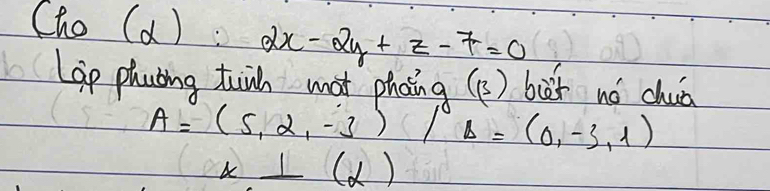 Cho (α) : 2x - 2y + z - 7 = 0
Lập phương trình mặt phẳng (β) biết nó chứa
A = (5, 2, -3) / B = (0, -3, 1)
x ⊥ (α)